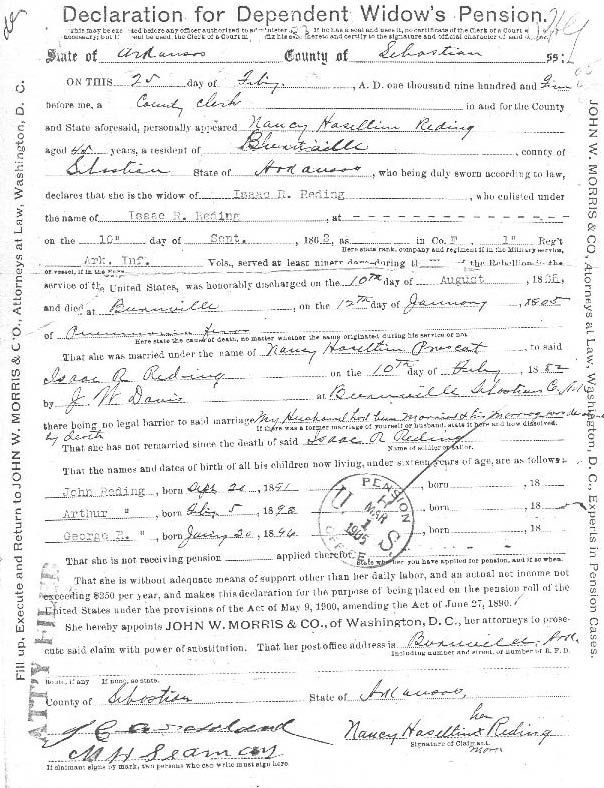 Declaration for Dependent Widow's Pension.
This may be executed before any officer authorized to administer If he has a seal and uses it, no certificate of the Clerk of a Court
necessary; but if used, the Clerk of a Court his hereto and certify to the signature and official character of said
State of Arkansas County of Sebastian ss:
ON THIS 25 day of Feby, A. D. one thousand nine hundred and
before me, a County Clerk in and for the County
and State aforesaid, personally appeared Nancy Haseltine Reding
aged 45 years, a resident of , county of
Sebastian State of Arkansas, who being duly sworn according to law,
declares that she is the widow of Isaac R. Reding, who enlisted under
the name of Isaac R. Reding, at - - - - - - - - - -
on the 10" day of Sept., 1862, as in Co. F, 1" Reg't
Here state rank, company and regiment if in the Military service,
Ark. Inf. Vols., served at least ninety days during the of the Rebellion in the
or vessel, if in the Navy.
service of the United States, was honorably discharged on the 10th day of August, 18
and died at , on the 12th day of January, 1905
of
Here state the cause of death, no matter whether the same originated during his service or not
That she was married under the name of Nancy Haseltine to said
Isaac R Reding on the 10th day of Feby, 1882
by J. W. Davis at Sebastian Co.
there being no legal barrier to said marriage. My Husband had been Married & his
If there was a former marriage of yourself or husband, state it here and how dissolved.
by death
That she has not remarried since the death of said Isaac R Reding
Name of soldier or sailor.
That the names and dates of birth of all his children now living, under sixteen years of age, are as follows:
John Reding, born Apr 20, 1891 , born , 18
Arthur " , born Feby 5, 1893 , born , 18
George R. " , born Jany 20, 1896 , born , 18
U. S. PENSION OFFICE
MAR 1 1905
That she is not receiving pension applied therefor
State whether you have applied for pension, and if so when.
That she is without adequate means of support other than her daily labor, and an actual net income not
exceeding $250 per year, and makes this declaration for the purpose of being placed on the pension roll of the
United States under the provisions of the Act of May 9, 1900, amending the Act of June 27, 1890.
She hereby appoints JOHN W. MORRIS & CO., of Washington, D. C., her attorneys to prose-
cute said claim with power of substitution. That her post office address is Ark.
Including number and street, or number of R. F. D.
Route, if any If none, so state.
County of Sebastian State of Arkansas,
her
Nancy Haseltine Reding
Signature of Claimant.
M H Seamay
If claimant signs by mark, two persons who can write must sign here.
Fill up, Execute and Return to JOHN W. MORRIS & CO., Attorneys at Law, Washington, D. C.
JOHN W. MORRIS & CO., Attorneys at Law, Washington, D. C., Experts in Pension Cases.
ATT'Y FILED